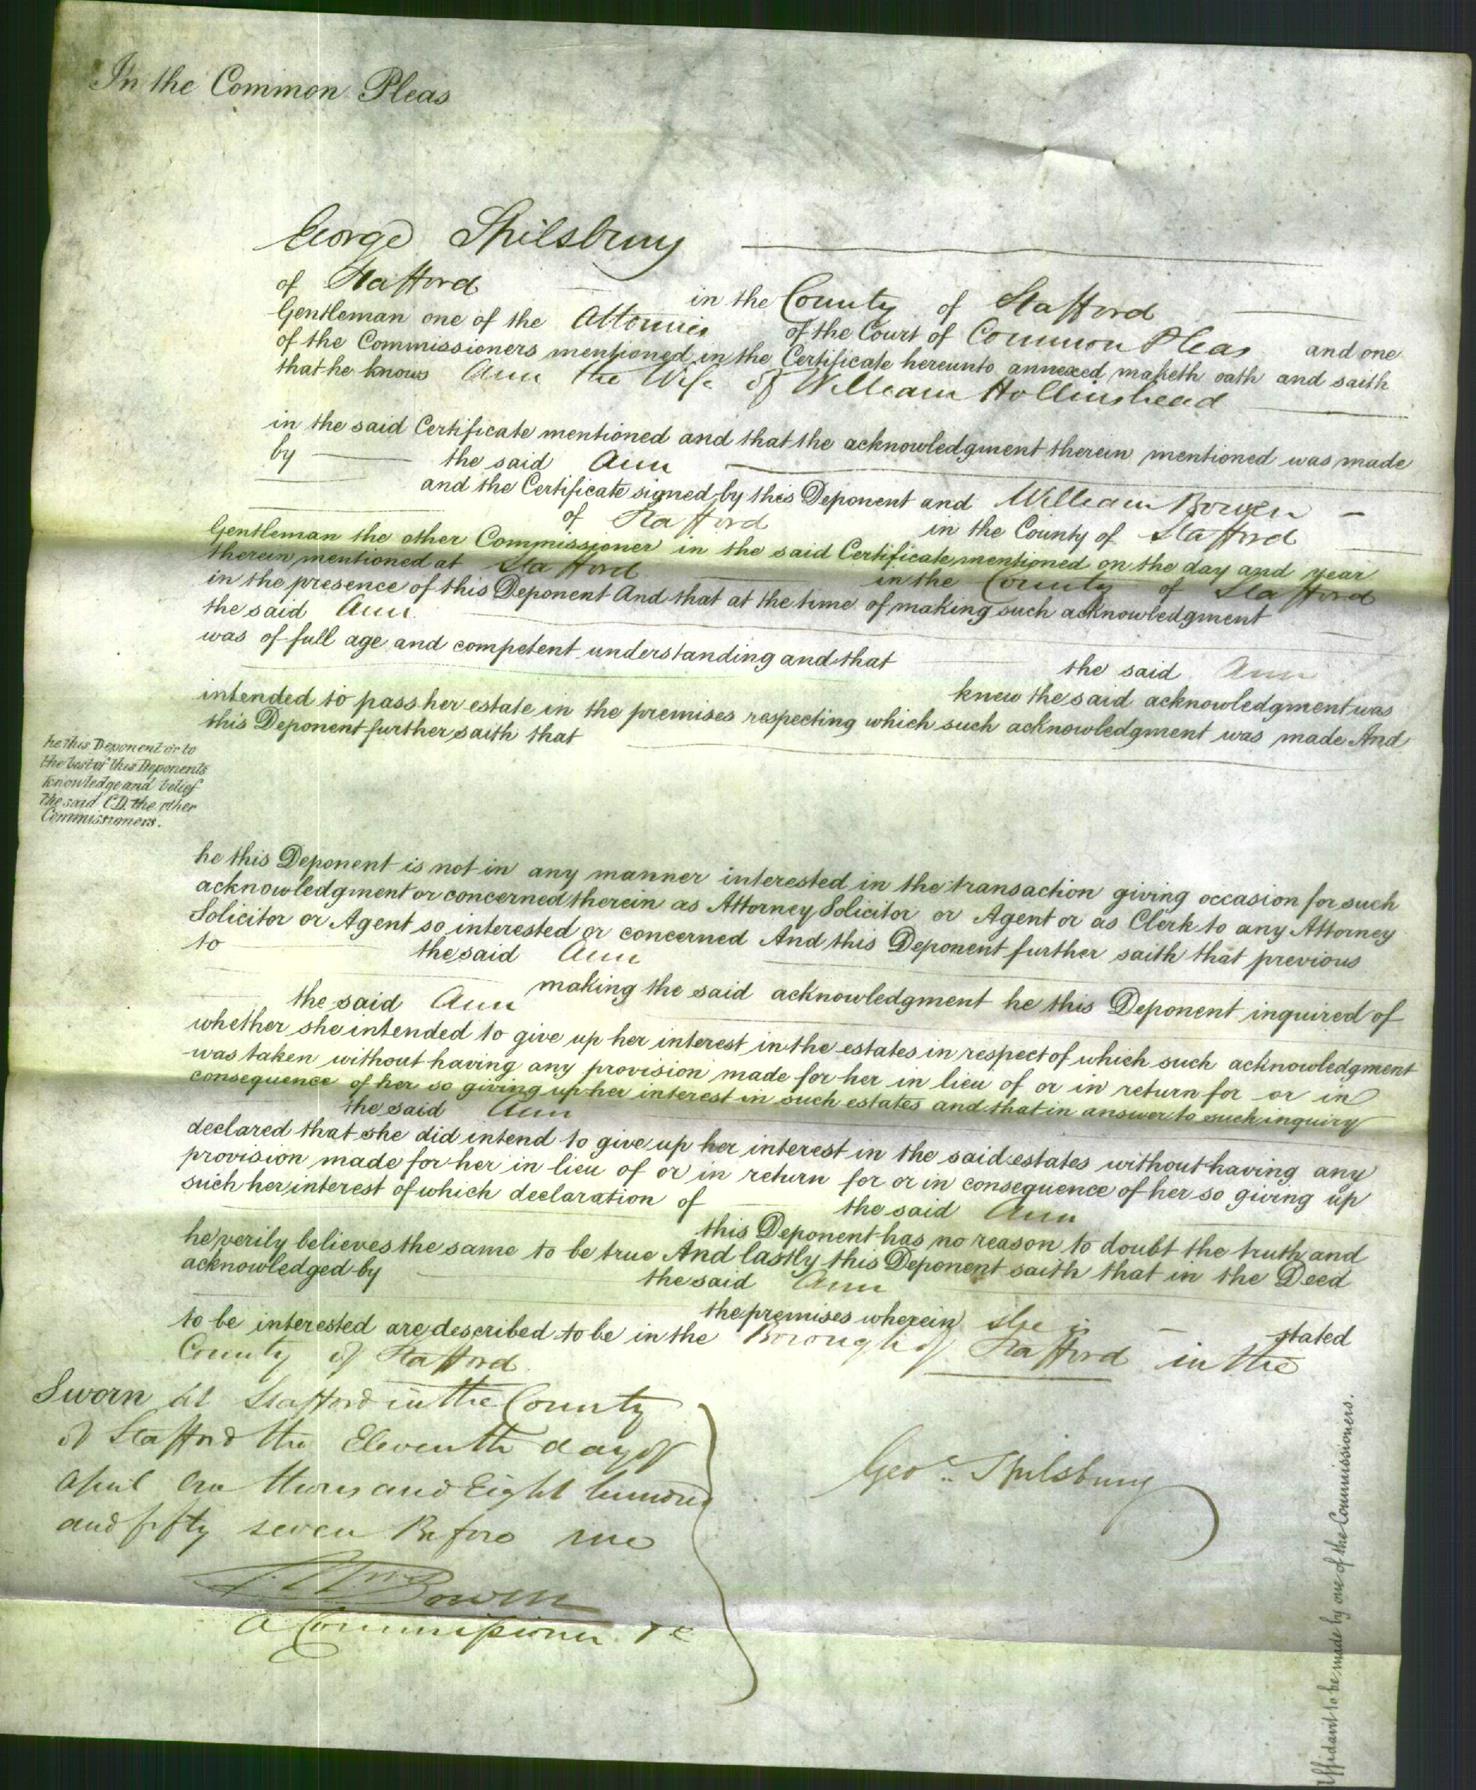 In the Common Pleas
George Spilsbury
of Stafford in the County of Stafford
Gentleman one of the Attornies of the Court of Common Pleas and one
of the Commissioners mentioned in the Certificate hereunto annexed maketh oath and saith
that he knows Ann the Wife of William Hollinshead
in the said Certificate mentioned and that the acknowledgment therein mentioned was made
by the said Ann
and the Certificate signed by this Deponent and William Bowen
of Stafford in the County of Stafford
Gentleman the other Commissioner in the said Certificate mentioned on the day and year
therein mentioned at Stafford in the County of Stafford
in the presence of this Deponent And that at the time of making such acknowledgment
the said Ann
was of full age and competent understanding and that the said Ann
knew the said acknowledgment was
intended to pass her estate in the premises respecting which such acknowledgment was made And
this Deponent further saith that
he this Deponent or to
the best of this Deponents
knowledge and belief
the said C.D. the other
Commissioners.
he this Deponent is not in any manner interested in the transaction giving occasion for such
acknowledgment or concerned therein as Attorney Solicitor or Agent or as Clerk to any Attorney
Solicitor or Agent so interested or concerned And this Deponent further saith that previous
to the said Ann
making the said acknowledgment he this Deponent inquired of
the said Ann
whether she intended to give up her interest in the estates in respect of which such acknowledgment
was taken without having any provision made for her in lieu of or in return for or in
consequence of her so giving up her interest in such estates and that in answer to such inquiry
the said Ann
declared that she did intend to give up her interest in the said estates without having any
provision made for her in lieu of or in return for or in consequence of her so giving up
such her interest of which declaration of the said Ann
this Deponent has no reason to doubt the truth and
he verily believes the same to be true And lastly this Deponent saith that in the Deed
acknowledged by the said Ann
the premises wherein she is stated
to be interested are described to be in the Borough of Stafford in the
County of Stafford
Sworn at Stafford in the County
of Stafford the Eleventh day of
April One thousand Eight hundred
and fifty seven Before me
Wm Bowen
A Commissioner &c
Geo. Spilsbury
Affidavit to be made by one of the Commissioners.